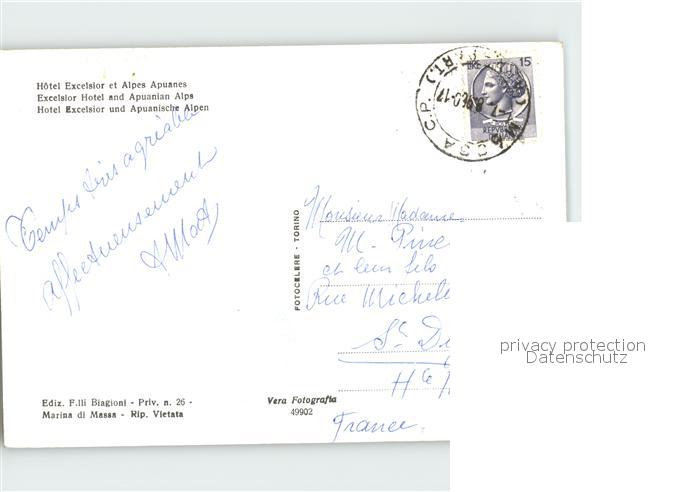 Hôtel Excelsior et Alpes Apuanes
Excelsior Hotel and Apuanian Alps
Hotel Excelsior und Apuanische Alpen
LIRE 15
MASSA C.P.
Temps très agréable
affectueusement
FOTOCELERE - TORINO
Monsieur Madame
M. Pine
et leur fils
Rue Michele
St. De
Hte
France.
Ediz. F.lli Biagioni - Priv. n. 26 -
Marina di Massa - Rip. Vietata
Vera Fotografia
49902
privacy protection
Datenschutz